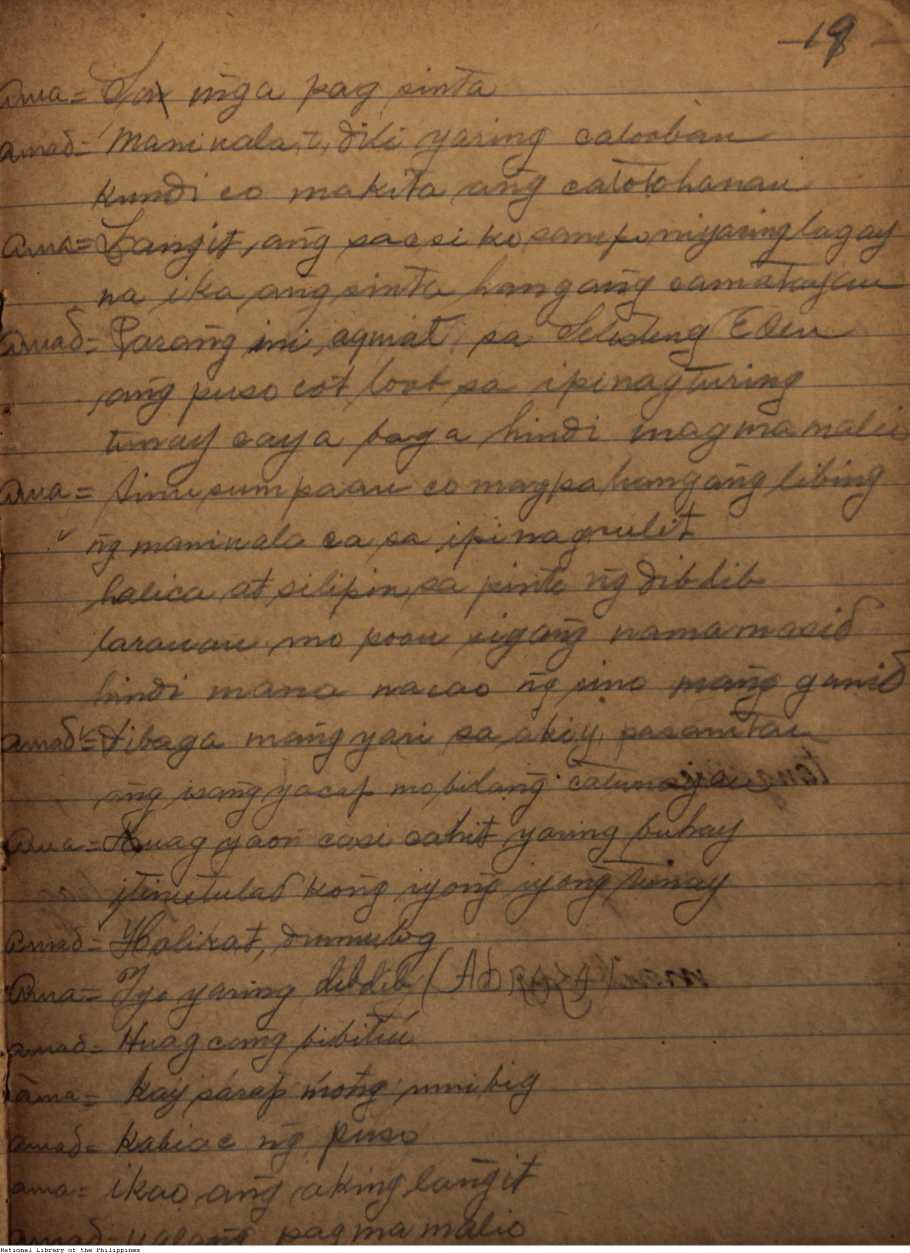 -19-
Ama = Son mga pag sinta
Amad = Maniuala, t, diki yaring catooban
kundi co makita ang catotohanan
Ama = Langit, ang sacsi ko sampo niyaring lagay
na ika ang sinta hangang camatayan
Amad = Parang ini, aquiat, sa Eden
ang puso cot loob sa ipinagturing
tunay caya baga hindi magmamalio
Ama = sumpaan co magpahangang libing
ng maniuala ca sa ipinagulit
halica at silipin sa pinto ng dibdib
larauan mo poon siyang namamasid
hindi mana nacao ng sino mang ganid
Amad = Dibaga mangyari sa akiy, pasanitan
ang isang yacap mobilang
Ama = Huag yaon casi cahit yaring buhay
itinutulad kong iyong iyong tunay
Amad = Halikat, dumulog
Ama = Iyo yaring dibdib (
Amad = Huag cang bibitiu
ama = kay sarap mong umibig
amad = kabiac ng puso
ama = ikao ang aking langit
amad = ualang pagmamalio
National Library of the Philippines